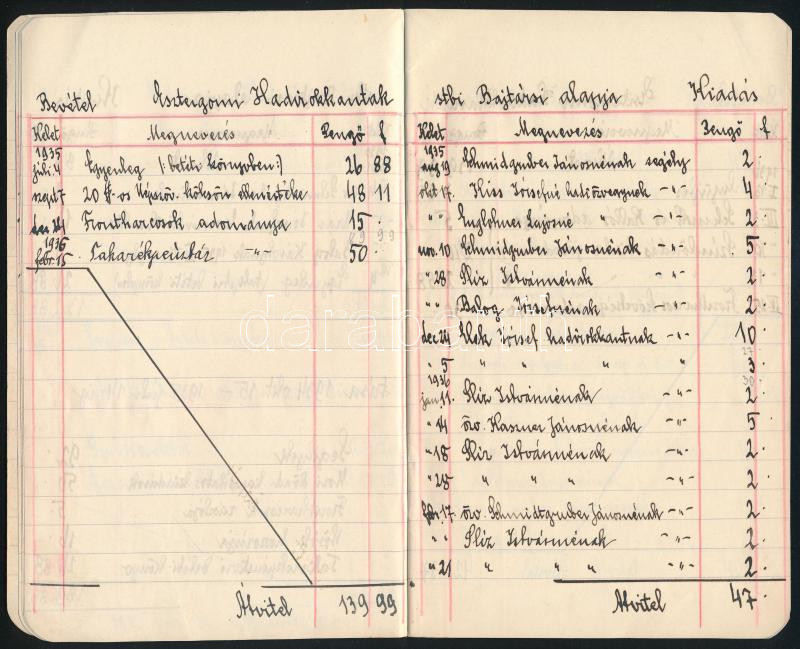 Bevétel Esztergomi Hadirokkantak
Kelet Megnevezés Pengő f
1935
juli. 4 Egyenleg (: betéts. könyvben :) 26 88
szept 7 48 11
dec 24 Frontharcosok adománya 15
1936
febr. 15 Takarékpénztár -"- 50
Átvitel 139 99
stbi Bajtársi alapja Kiadás
Kelet Megnevezés Pengő f
1935
aug 19 Schmidgruber Jánosnénak segély 2
okt 17. Kiss Józsefné hadiözvegynek -"- 4
" " Englohner Lajosné " -"- 2
nov. 10 Schmidgruber Jánosnénak -"- 5
" 28 Sliz Istvánnénak -"- 2
" " Balog Józsefnének -"- 2
dec 24 József hadirokkantnak -"- 10
" 5 " " " " 3
1936
jan. 11. Sliz Istvánnénak -"- 2
" 14 özv. Kaszner Jánosnénak -"- 5
" 18 Sliz Istvánnénak -"- 2
" 28 " " " -"- 2
febr. 17 özv. Schmidtgruber Jánosnénak -"- 2
" " Sliz Istvánnénak -"- 2
" 21 " " -"- 2
Átvitel 47